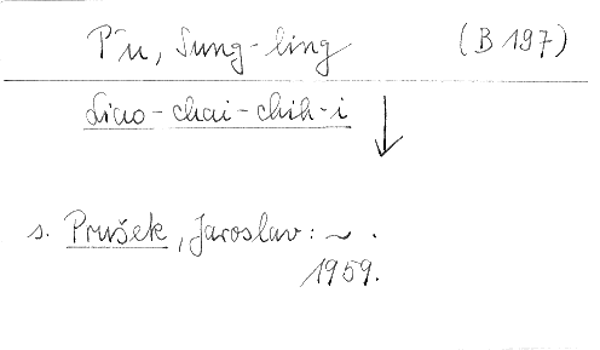 P'u, Sung-ling (B 197)
Liao-chai-chih-i ↓
s. Prušek, Jaroslav: ~ .
1959.